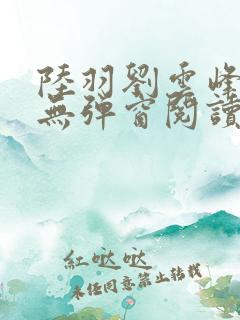 陸羽劉雲峰
無彈窗閱讀
紅噠噠
未经同意禁止转载